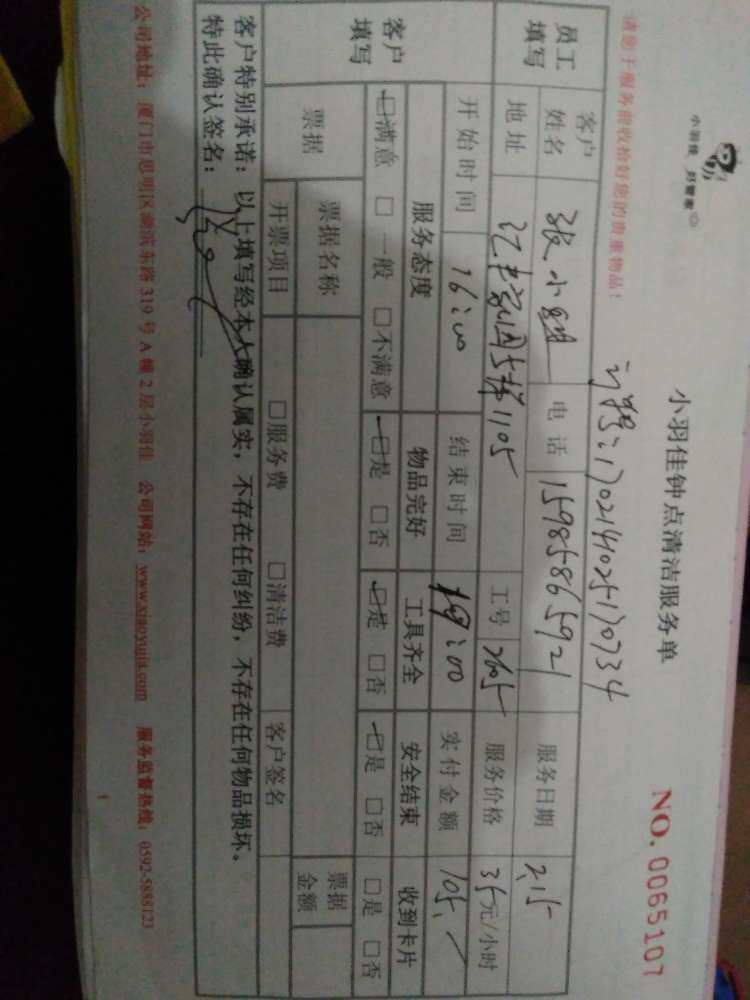 小羽佳 好管家
小羽佳钟点清洁服务单
NO. 0065107
请您于服务前收拾好您的贵重物品！
订单号：170214102517073 4
员工填写
客户姓名 张小姐 电话 15985865921 服务日期 2.15
地址 汇丰家园5梯1105 工号 2605 服务价格 35元/小时
开始时间 16:00 结束时间 19:00 实付金额 105.
客户填写
服务态度 物品完好 工具齐全 安全结束 收到卡片
☑满意 □一般 □不满意 ☑是 □否 ☑是 □否 ☑是 □否 □是 □否
票据 票据名称 票据金额
开票项目 □服务费 □清洁费 客户签名
客户特别承诺：以上填写经本人确认属实，不存在任何纠纷，不存在任何物品损坏。
特此确认签名：
公司地址：厦门市思明区湖滨东路319号A幢2层小羽佳 公司网站：www.xiaoyujia.com 服务监督热线：0592-5888123
1